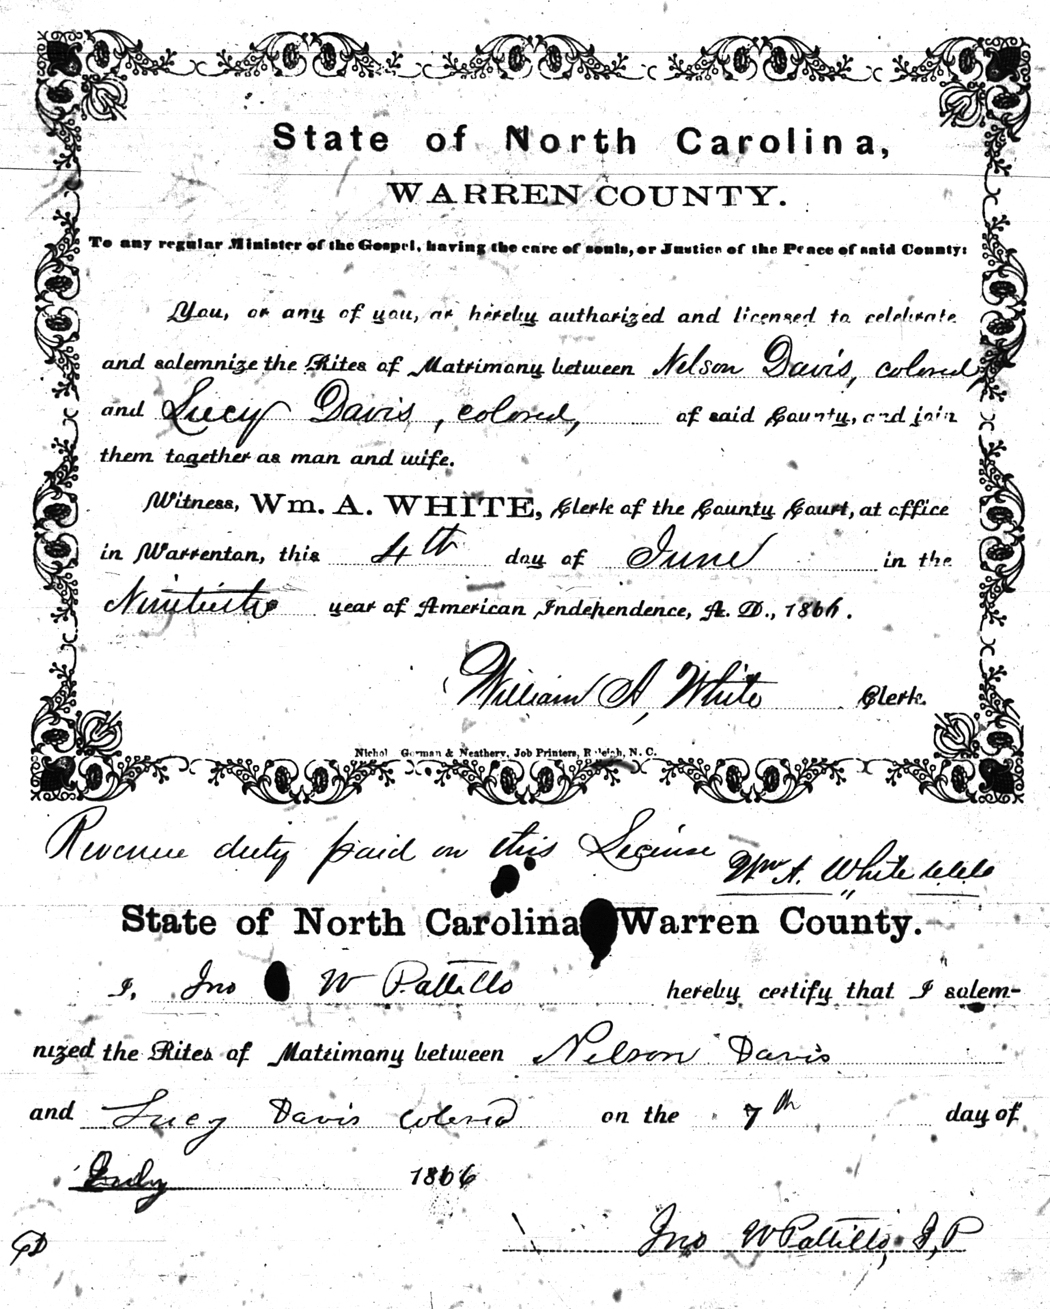 State of North Carolina,
WARREN COUNTY.
To any regular Minister of the Gospel, having the care of souls, or Justice of the Peace of said County:
You, or any of you, are hereby authorized and licensed to celebrate
and solemnize the Rites of Matrimony between Nelson Davis, colored,
and Lucy Davis, colored, of said County, and join
them together as man and wife.
Witness, Wm. A. WHITE, Clerk of the County Court, at office
in Warrenton, this 4th day of June in the
Ninetieth year of American Independence, A. D., 1866.
William A, White Clerk.
Nichol Gorman & Neathery, Job Printers, Raleigh, N. C.
Revenue duty paid on this License
Wm A. White
State of North Carolina Warren County.
I, Jno W Pattillo hereby certify that I solem-
nized the Rites of Matrimony between Nelson Davis
and Lucy Davis colored on the 7th day of
July 1866
Jno W Pattillo, J, P